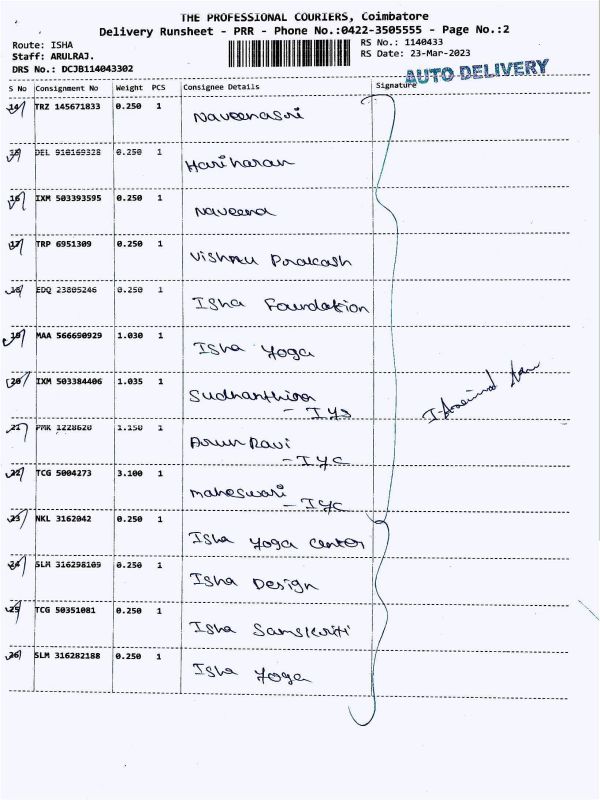 THE PROFESSIONAL COURIERS, Coimbatore
Delivery Runsheet - PRR - Phone No.:0422-3505555 - Page No.:2
Route: ISHA
Staff: ARULRAJ.
DRS No.: DCJB114043302
RS No.: 1140433
RS Date: 23-Mar-2023
AUTO DELIVERY
S No Consignment No Weight PCS Consignee Details Signature
14 TRZ 145671833 0.250 1 Naveenasri
15 DEL 910169328 0.250 1 Hariharan
16 IXM 503393595 0.250 1 Naveena
17 TRP 6951309 0.250 1 Vishnu Prakash
18 EDQ 23805246 0.250 1 Isha Foundation
19 MAA 566690929 1.030 1 Isha Yoga
20 IXM 503384406 1.035 1
- IYS
21 PMK 1228620 1.150 1 Arun Ravi
- IYC
22 TCG 5004273 3.100 1 Maheswari
- IYC
23 NKL 3162042 0.250 1 Isha Yoga Center
24 SLM 316298109 0.250 1 Isha Design
25 TCG 50351081 0.250 1 Isha Samskriti
26 SLM 316282188 0.250 1 Isha Yoga